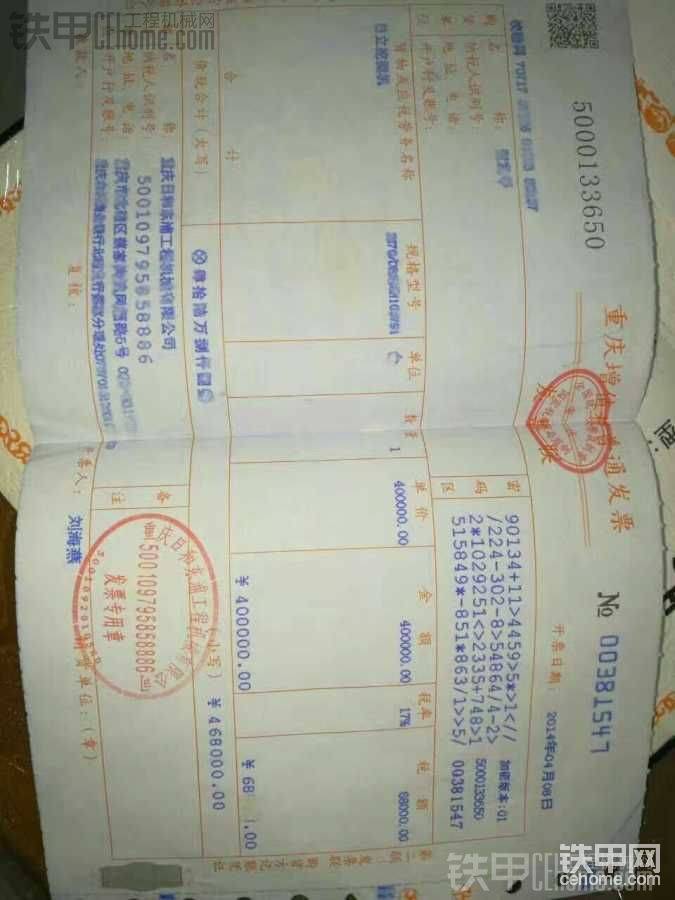 5000133650
重庆增值税普通发票
№ 00381547
开票日期: 2014年04月08日
发票联
购
货
单
位
名 称:
纳税人识别号:
地址、电话:
开户行及账号:
密
码
区
90134+11>4459>5*>1<//
/224-302-8>54864/4-2>
2*1029251<>2335+748>1
515849*-851*863/1>>5/
加密版本:01
5000133650
00381547
货物或应税劳务名称
规格型号
单位
数量
单价
金额
税率
税额
日立挖掘机
台
1
400000.00
400000.00
17%
68000.00
合 计
¥400000.00
¥68
.00
价税合计(大写)
⊗肆拾陆万捌仟圆
(小写) ¥468000.00
名 称: 重庆日和东浦工程机械有限公司
纳税人识别号: 500109795858886
地址、电话:
开户行及账号:
备
注
收款人:
复核:
开票人: 刘海燕
销货单位:(章)
500109795858886
发票专用章
第二联:发票联 购货方记账凭证
铁甲工程机械网
CEhome.com
铁甲CEhome.com
铁甲网
cehome.com